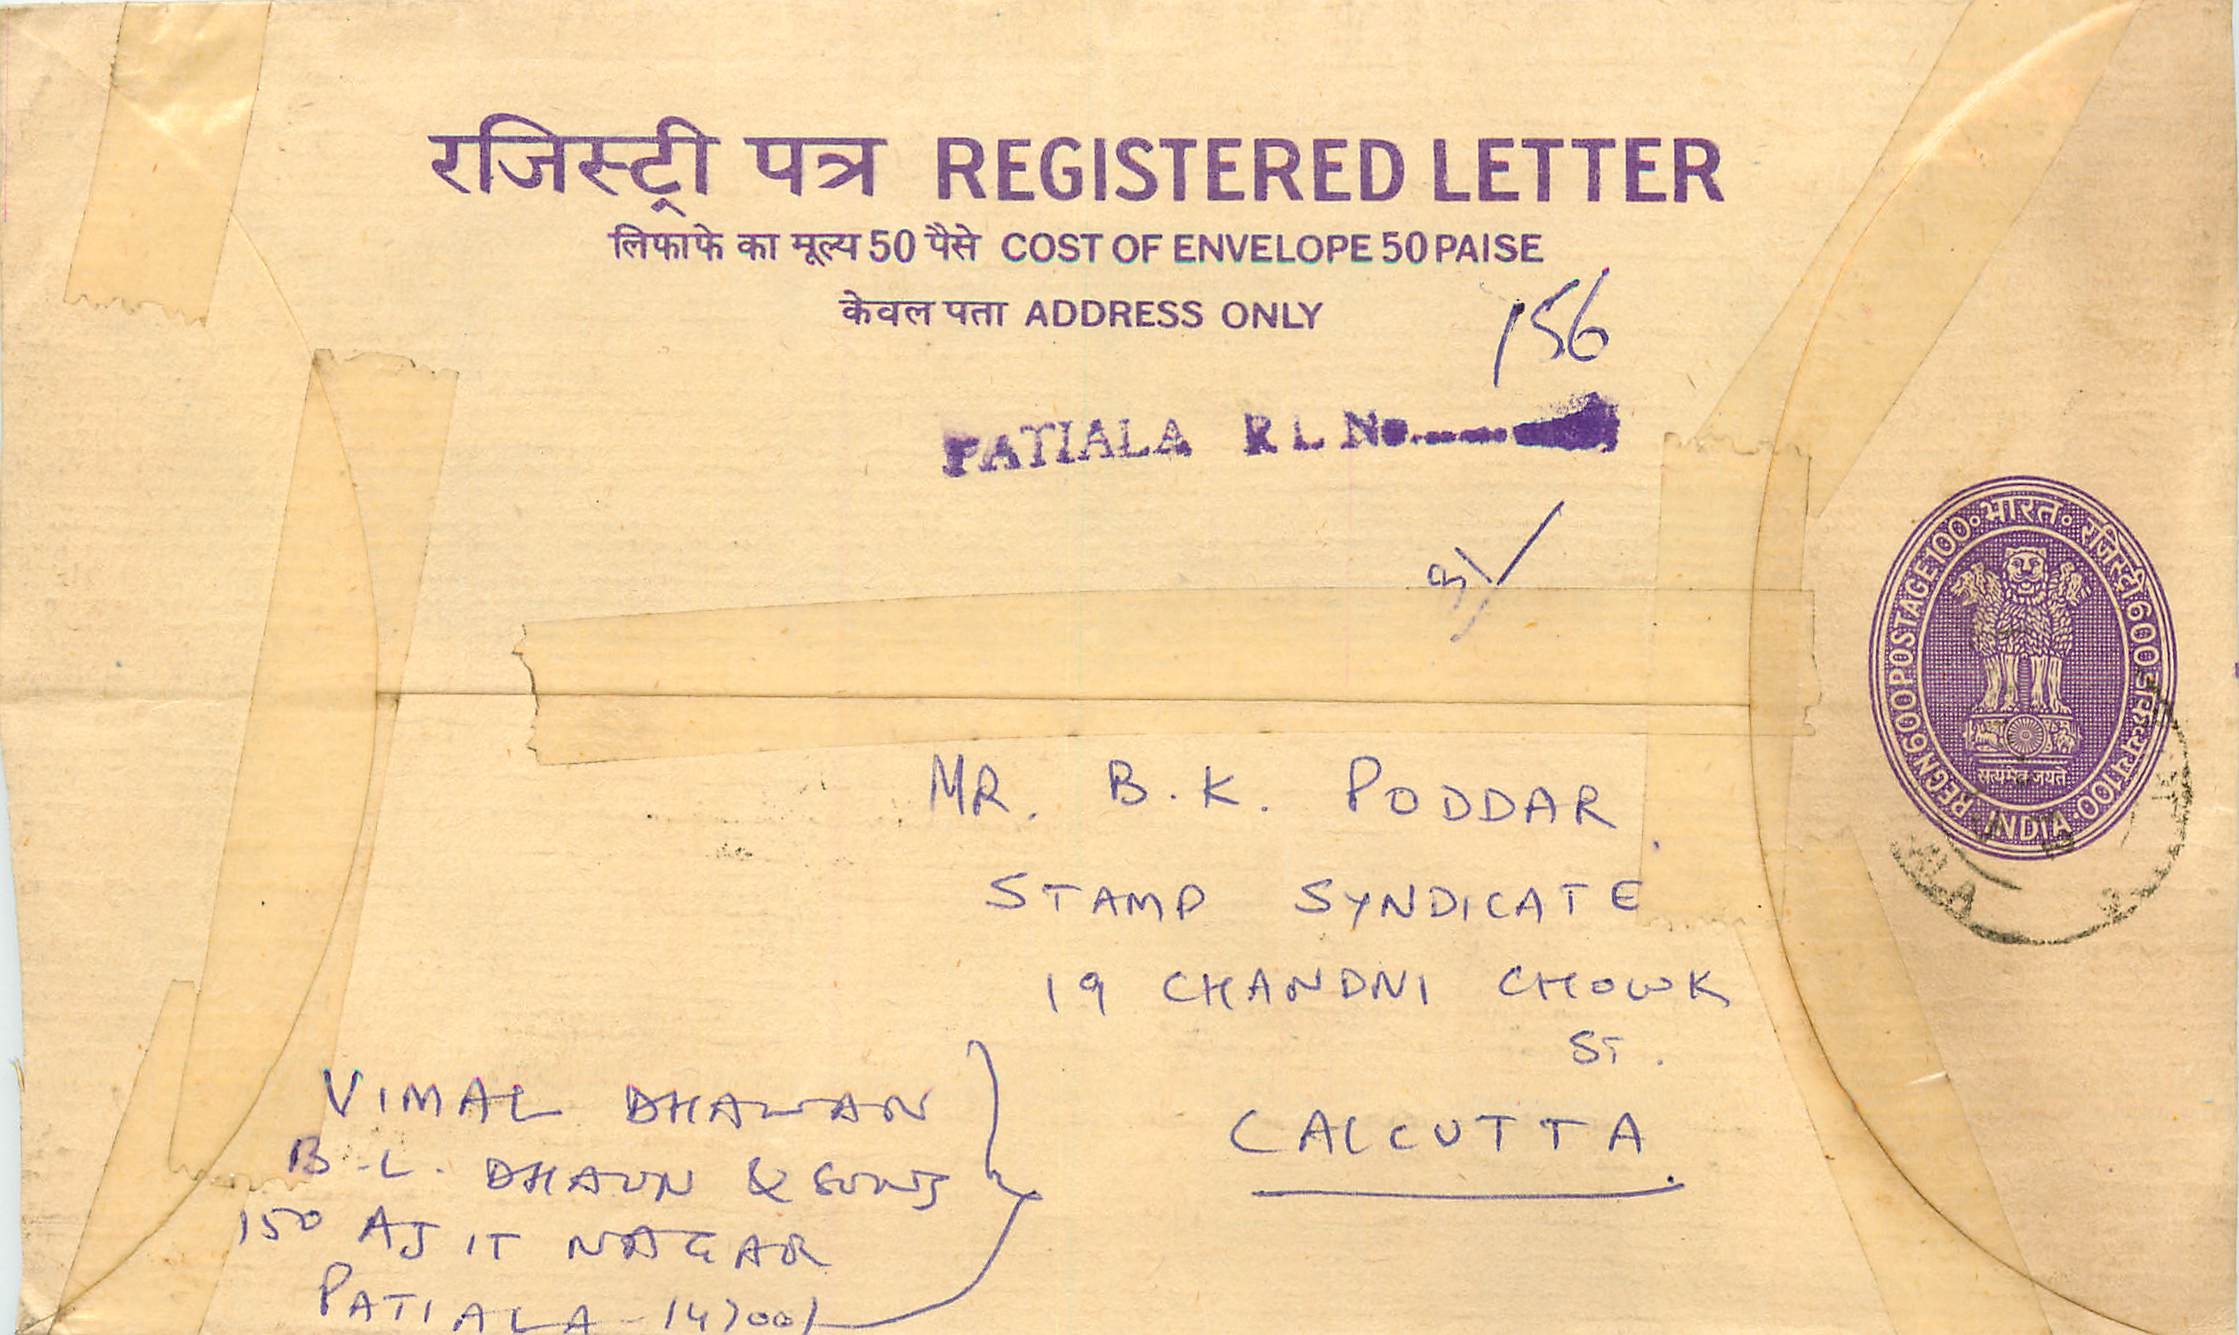 रजिस्ट्री पत्र REGISTERED LETTER
लिफाफे का मूल्य 50 पैसे COST OF ENVELOPE 50 PAISE
केवल पता ADDRESS ONLY
156
PATIALA R L No.
भारत रजिस्ट्री 600 डाकव्यय 100 INDIA REGN 600 POSTAGE 100
सत्यमेव जयते
MR. B. K. PODDAR
STAMP SYNDICATE
19 CHANDNI CHOWK
ST.
CALCUTTA
VIMAL DHAWAN
B. L. DHAUN & SONS
150 AJIT NAGAR
PATIALA - 147001